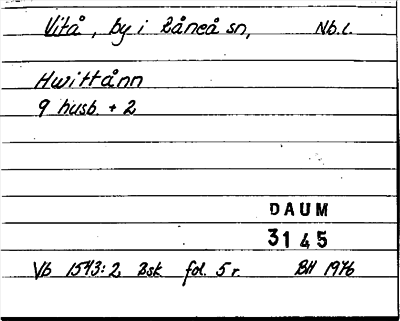 Vitå, by i Råneå sn, Nb.l.
Hwittånn
9 husb. + 2
DAUM
3145
Vb 1543:2 Bsk fol. 5 r. BH 1976